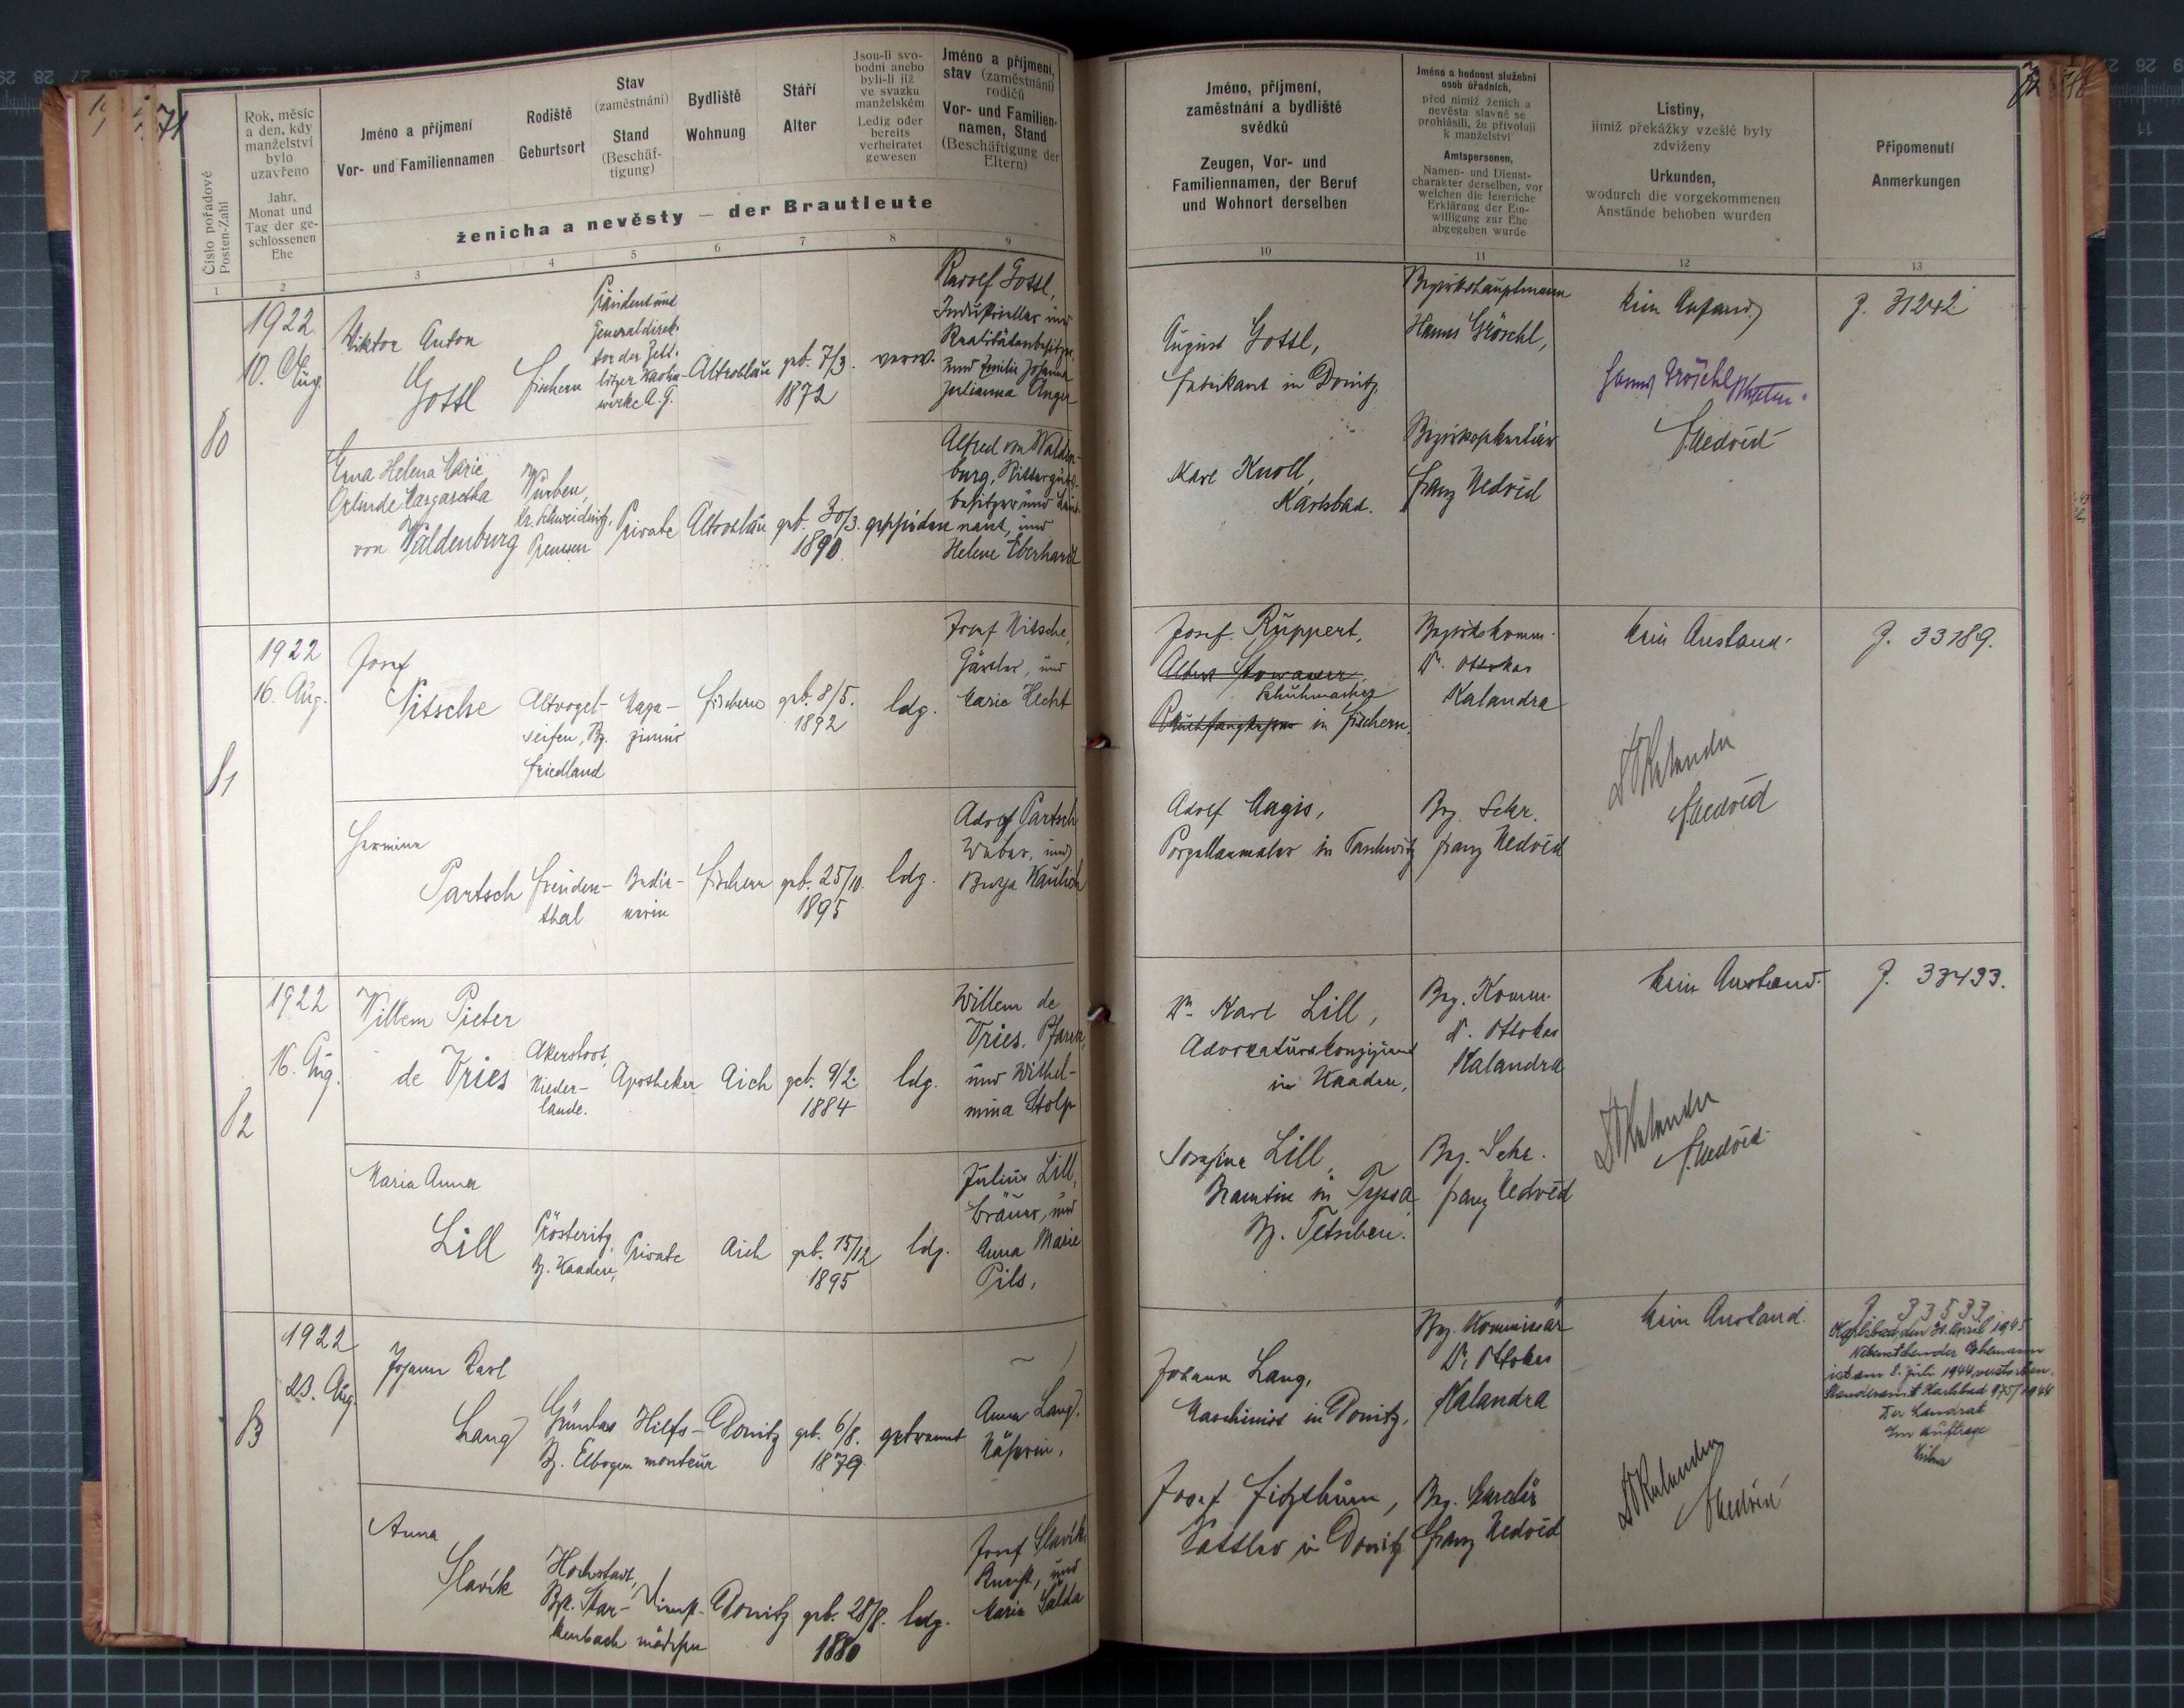 71
Číslo pořadové
Posten-Zahl
Rok, měsíc
a den, kdy
manželství
bylo
uzavřeno
Jahr,
Monat und
Tag der ge-
schlossenen
Ehe
Jméno a příjmení
Vor- und Familiennamen
Rodiště
Geburtsort
Stav
(zaměstnání)
Stand
(Beschäf-
tigung)
Bydliště
Wohnung
Stáří
Alter
Jsou-li svo-
bodni anebo
byli-li již
ve svazku
manželském
Ledig oder
bereits
verheiratet
gewesen
Jméno a příjmení,
stav (zaměstnání)
rodičů
Vor- und Familien-
namen, Stand
(Beschäftigung der
Eltern)
ženicha a nevěsty — der Brautleute
1 2 3 4 5 6 7 8 9
Jméno, příjmení,
zaměstnání a bydliště
svědků
Zeugen, Vor- und
Familiennamen, der Beruf
und Wohnort derselben
Jméno a hodnost služební
osob úřadních,
před nimiž ženich a
nevěsta slavně se
prohlásili, že přivolují
k manželství
Amtspersonen,
Namen- und Dienst-
charakter derselben, vor
welchen die feierliche
Erklärung der Ein-
willigung zur Ehe
abgegeben wurde
Listiny,
jimiž překážky vzešlé byly
zdviženy
Urkunden,
wodurch die vorgekommenen
Anstände behoben wurden
Připomenutí
Anmerkungen
10 11 12 13
80
1922
10. Aug.
Viktor Anton
Gottl
Fischern
Präsident und
Generaldirek-
tor der Zett-
litzer Kaolin-
werke A.G.
Altrohlau
geb. 7/3.
1872
verw.
Rudolf Gottl,
Industrieller und
Realitätenbesitzer,
und Emilie Johanna
Julianna Unger
Erna Helena Marie
Gerlinde Margaretha
von Waldenburg
Würben,
Kr. Schweidnitz,
Preussen
Private
Altrohlau
geb. 30/3.
1890.
geschieden
Alfred von Walden-
burg, Rittergüts-
besitzer und Leut-
nant, und
Helene Eberhardt
August Gottl,
Fabrikant in Donitz,
Karl Knoll,
Karlsbad.
Bezirkshauptmann
Hanns Gröschl,
Franz Nedvěd
kein Anstand
Hanns Gröschl
Nedvěd
Z. 31242
81
1922
16. Aug.
Josef
Nitsche
Altvogel-
seifen, Bz.
Friedland
Maga-
zineur
Fischern
geb. 8/5.
1892
ldg.
Josef Nitsche,
Gärtner, und
Marie Hecht
Hermine
Partsch
Freuden-
thal
Bedie-
nerin
Fischern
geb. 25/10.
1895
ldg.
Adolf Partsch
Weber, und
Kaulich
Josef Ruppert,
Schuhmacher
in Fischern,
Adolf Magis,
Porzellanmaler in Taschwitz
Bezirkskomm.
Dr. Ottokar
Kalandra
Bez. Sekr.
Franz Nedvěd
kein Anstand.
Dr Kalandra
Nedvěd
Z. 33189.
82
1922
16. Aug.
Willem Pieter
de Vries
Akersloot,
Nieder-
lande.
Apotheker
Aich
geb. 9/2.
1884
ldg.
Willem de
Vries, Pfarrer,
und Wilhel-
mina Stolp
Maria Anna
Lill
Pösteritz,
Bz. Kaaden,
Private
Aich
geb. 15/12
1895
ldg.
Julius Lill,
Bräuer, und
Anna Marie
Pils,
Dr. Karl Lill,
Advokaturskonzipient
in Kaaden,
Josefine Lill,
Beamtin in Tyssa
Bz. Tetschen.
Bez. Komm.
Dr. Ottokar
Kalandra
Bez. Sekr.
Franz Nedvěd
kein Anstand.
Dr Kalandra
Nedvěd
Z. 33493.
83
1922
23. Aug.
Johann Karl
Lang
Grünlas
Bz. Elbogen
Hilfs-
monteur
Donitz
geb. 6/8.
1879
getrennt
Anna Lang,
Näherin,
Anna
Slavík
Hochstadt,
Bzk. Star-
kenbach
Dienst-
mädchen
Donitz
geb. 28/8.
1880
ldg.
Josef Slavík,
Knecht, und
Marie Šalda
Johann Lang,
Maschinist in Donitz,
Josef Fitzthum,
Sattler in Donitz
Bez. Kommissär
Dr. Ottokar
Kalandra
Bez. Sekretär
Franz Nedvěd
kein Anstand.
Dr Kalandra
Nedvěd
Z. 33533.
Karlsbad, den 30. April 1945
Nebenstehender Ehemann
ist am 8. Juli 1944 verstorben.
Standesamt Karlsbad 975/1944
Der Landrat
Im Auftrage